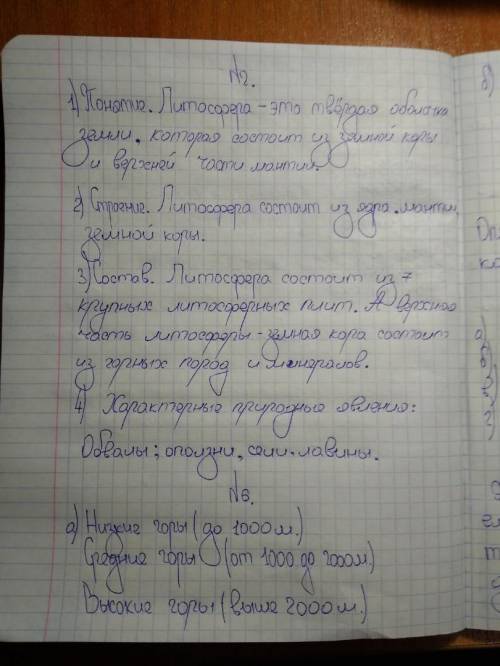 №2.
1) Понятие. Литосфера - это твёрдая оболочка
земли. которая состоит из земной коры
и верхней части мантии.
2) Строение. Литосфера состоит из ядра. мантии,
земной коры.
3) Состав. Литосфера состоит из 7
крупных литосферных плит. А верхняя
часть литосферы - земная кора состоит
из горных пород и минералов.
4) Характерные природные явления:
Обвалы; оползни, сели. лавины.
№6.
а) Низкие горы (до 1000 м.)
Средние горы (от 1000 до 2000м.)
Высокие горы (выше 2000 м.)
б)
а)
б)
в)
г)